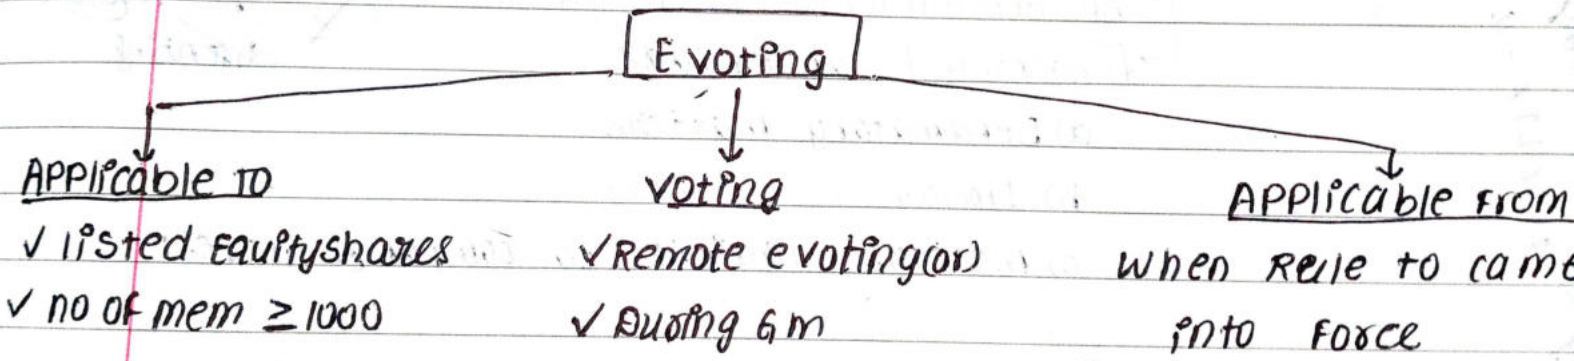 E.voting
Applicable to
✓ listed Equityshares
✓ no of mem ≥ 1000
voting
✓ Remote evoting(or)
✓ During Gm
Applicable from
when Rule to came
into force